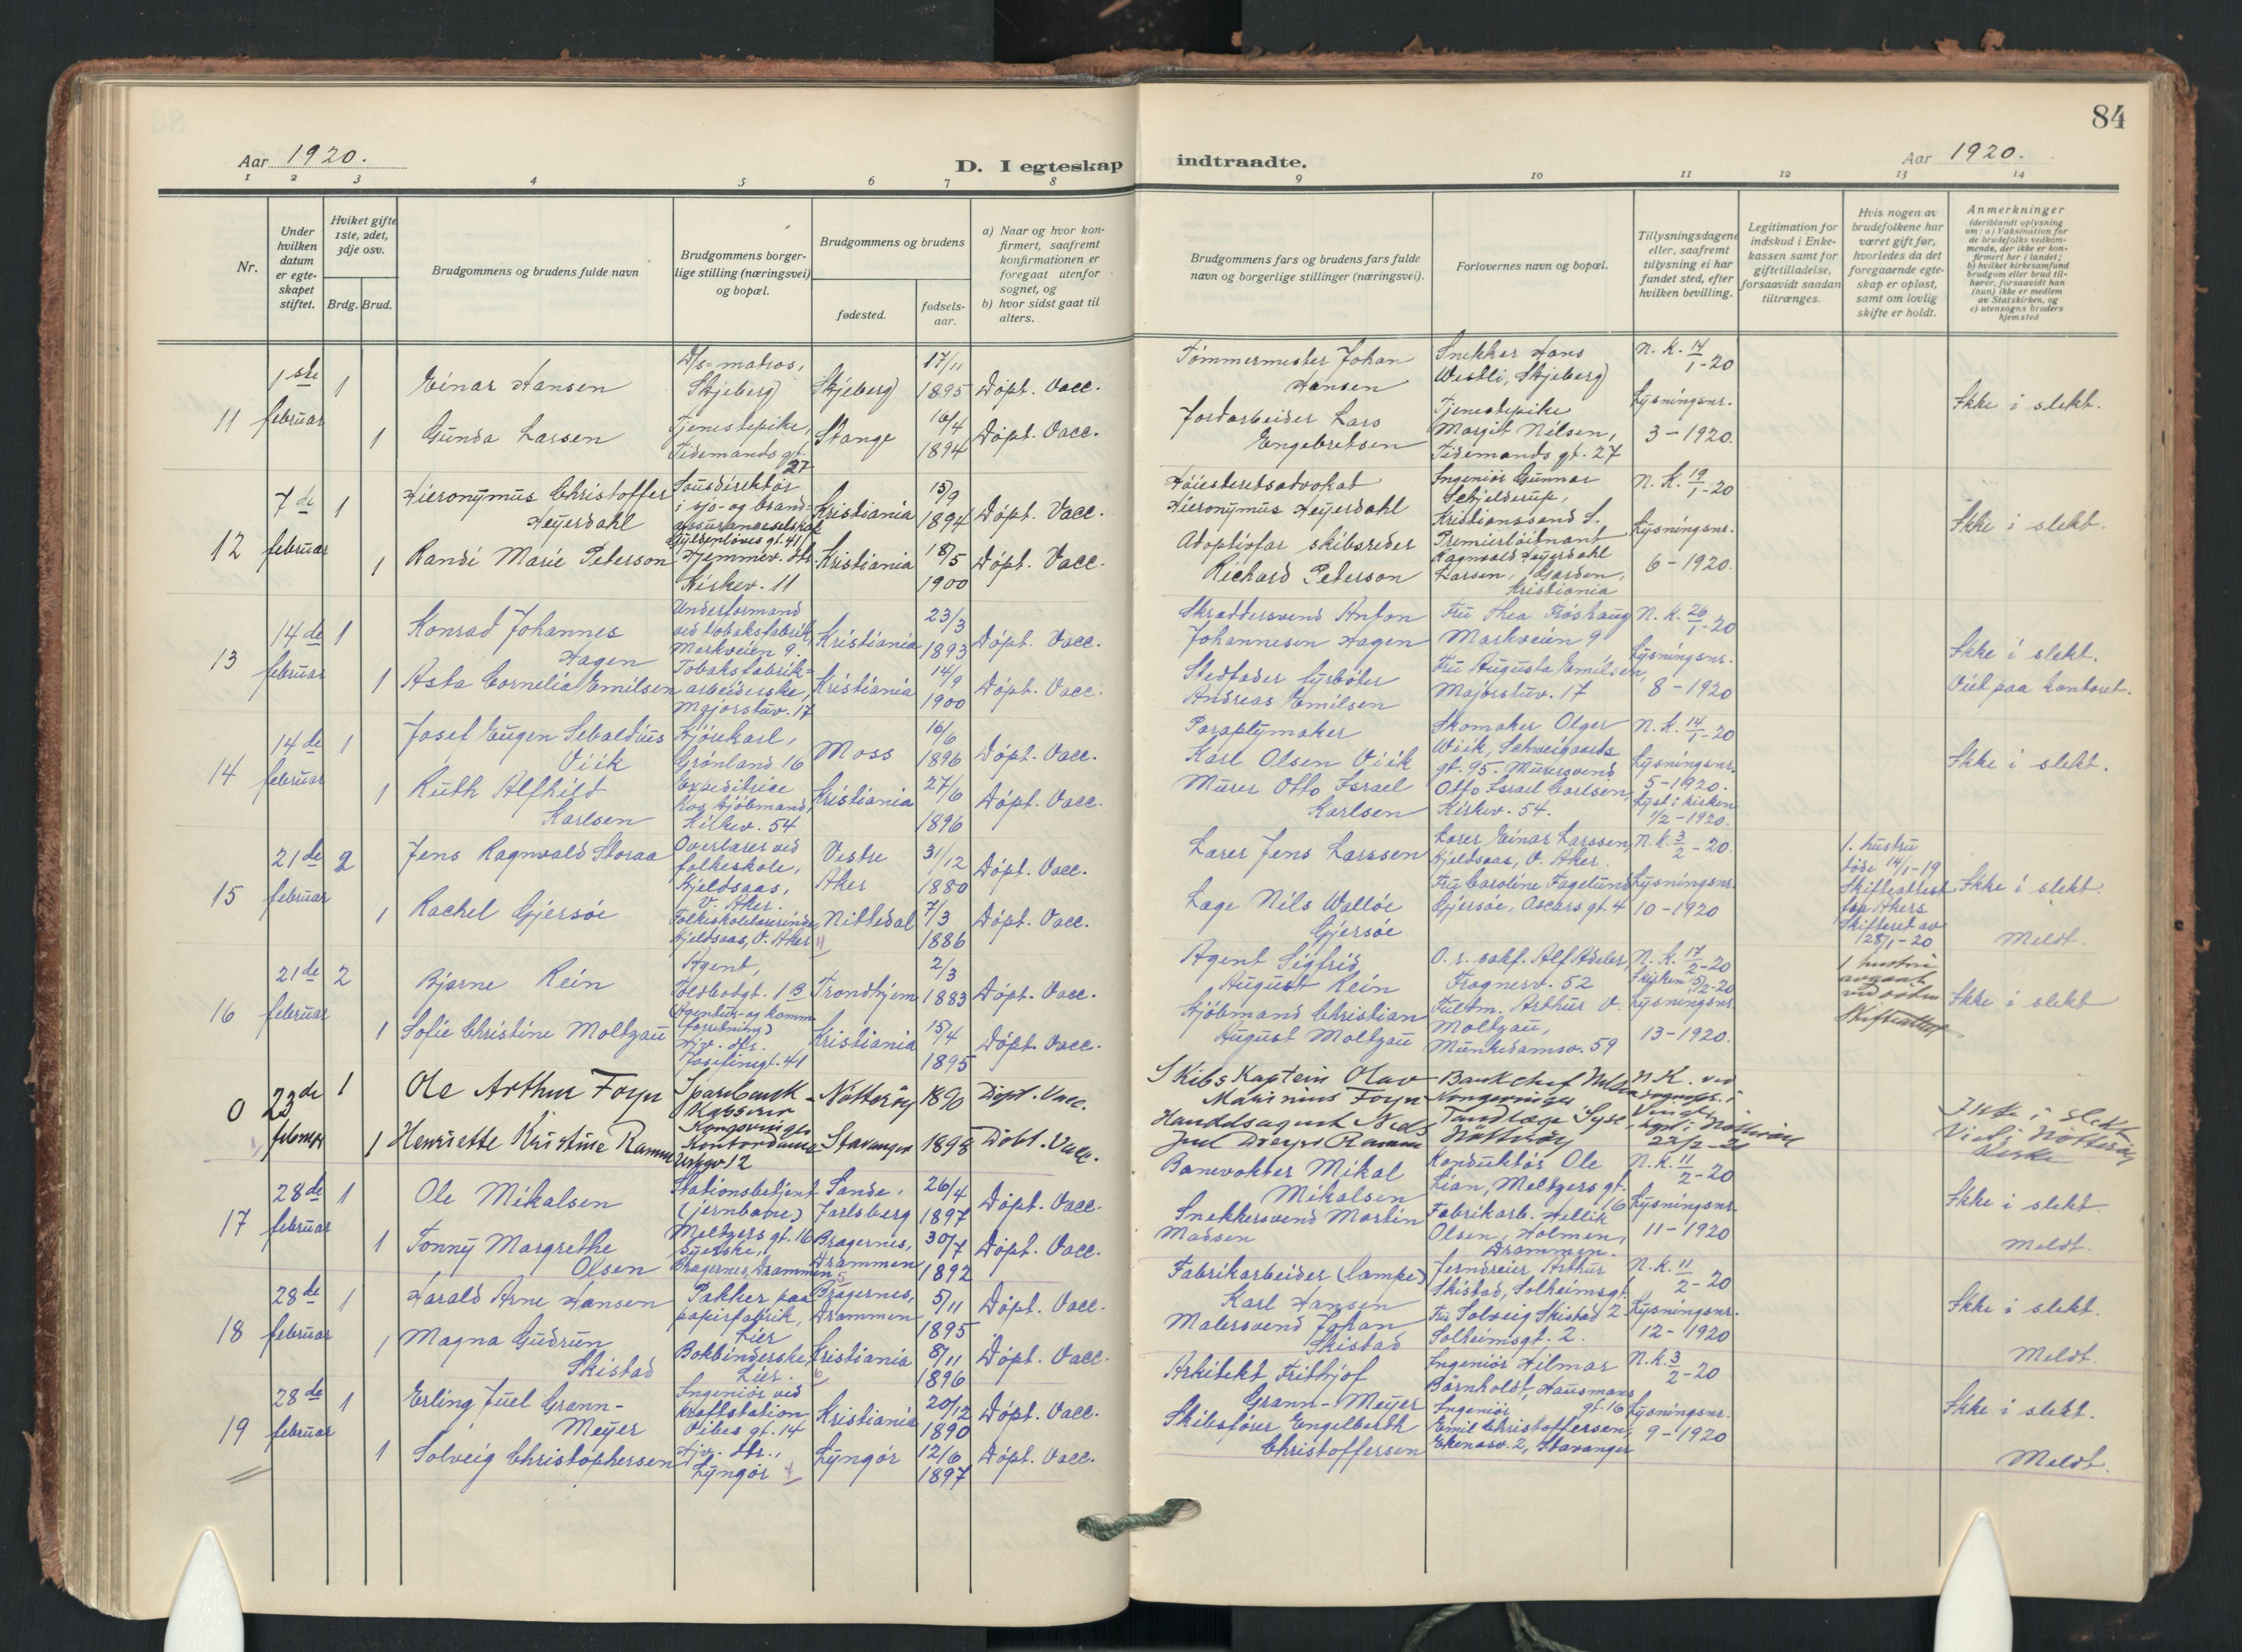 84
Aar 1920.
D. I egteskap indtraadte.
Aar 1920.
1 2 3 4 5 6 7 8 9 10 11 12 13 14
Nr.
Under hvilken datum er egteskapet stiftet.
Hviket gifte 1ste, 2det, 3dje osv.
Brdg. Brud.
Brudgommens og brudens fulde navn
Brudgommens borgerlige stilling (næringsvei) og bopæl.
Brudgommens og brudens
fødested.
fødselsaar.
a) Naar og hvor konfirmert, saafremt konfirmationen er foregaat utenfor sognet, og
b) hvor sidst gaat til alters.
Brudgommens fars og brudens fars fulde navn og borgerlige stillinger (næringsvei).
Forlovernes navn og bopæl.
Tillysningsdagene eller, saafremt tillysning ei har fundet sted, efter hvilken bevilling.
Legitimation for indskud i Enkekassen samt for giftetilladelse, forsaavidt saadan tiltrænges.
Hvis nogen av brudefolkene har været gift før, hvorledes da det foregaaende egteskap er opløst, samt om lovlig skifte er holdt.
Anmerkninger
(deriblandt oplysning om: a) Vaksination for de brudefolks vedkommende, der ikke er konfirmert her i landet;
b) hvilket kirkesamfund brudgom eller brud tilhører, forsaavidt han (hun) ikke er medlem av Statskirken, og
c) utensogns bruders hjemsted
11
1ste februar
1
Einar Hansen
D/s=matros, Skjeberg
Skjeberg
17/11 1895
Døpt. Vacc.
Tømmermester Johan Hansen
Snekker Hans Westli, Skjeberg
N. K. 14/1-20
Lysningsnr. 3-1920.
Ikke i slekt.
1
Gunda Larsen
Tjenestepike, Tidemands gt. 27
Stange
16/4 1894
Døpt. Vacc.
Jordarbeider Lars Engebretsen
Tjenestepike Margit Nilsen, Tidemands gt. 27
12
7de februar
1
Hieronymus Christoffer Heyerdahl
i sjø- og brand=assuranceselskap Gyldenløves gt. 41
Kristiania
15/9 1894
Døpt. Vacc.
Høiesteretsadvokat Hieronymus Heyerdahl
Ingeniør Gunnar Schjelderup, Kristianssand S.
N. K. 19/1-20
Lysningsnr. 6-1920.
Ikke i slekt.
1
Randi Marie Peterson
Hjemmev. dtr. Kirkev. 11
Kristiania
18/5 1900
Døpt. Vacc.
Adoptivfar skibsreder Richard Peterson
Premierløitnant Ragnvald Heyerdahl Larsen, Garden, Kristiania
13
14de februar
1
Konrad Johannes Hagen
Underformand ved tobaksfabrik, Markveien 9.
Kristiania
23/3 1893
Døpt. Vacc.
Skræddersvend Anton Johannesen Hagen
Fru Thea Frøshaug Markveien 9
N. K. 26/1-20
Lysningsnr. 8-1920
Ikke i slekt.
Viet paa kontoret.
1
Asta Cornelia Emilsen
Tobaksfabrik=arbeiderske, Majorstuv. 17
Kristiania
14/9 1900
Døpt. Vacc.
Stedfader fyrbøter Andreas Emilsen
Fru Augusta Emilsen, Majorstuv. 17
14
14de februar
1
Josef Eugen Sebaldius Viik
Kjørekarl, Grønland 16
Moss
16/6 1896
Døpt. Vacc.
Paraplymaker Karl Olsen Viik
Skomaker Olger Wiik, Schweigaards gt. 95.
N. K. 14/1-20
Lysningsnr. 5-1920.
Lyst i kirken 1/2-1920.
Ikke i slekt.
1
Ruth Alfhild Karlsen
Expeditrice hos kjøbmand, Kirkev. 54
Kristiania
27/6 1896
Døpt. Vacc.
Murer Otto Israel Karlsen
Murersvend Otto Israel Carlsen, Kirkev. 54.
15
21de februar
2
Jens Ragnvald Storaa
Overlærer ved folkeskole, Kjeldsaas, V. Aker.
Vestre Aker
31/12 1880
Døpt. Vacc.
Lærer Jens Larssen
Lærer Einar Larssen, Kjeldsaas, V. Aker.
N. K. 3/2-20.
Lysningsnr. 10-1920
1. hustru døde 14/1-19
Skifteattest fra Akers Skifteret av 28/1-20
Ikke i slekt.
Meldt.
1
Rachel Gjersøe
Folkeskolelærerinde, Kjeldsaas, V. Aker
Nittedal
7/3 1886
Døpt. Vacc.
Læge Nils Walløe Gjersøe
Fru Caroline Fagelund Gjersøe, Oscars gt. 4
16
21de februar
2
Bjarne Rein
Agent, Toldbodgt. 1 B (Agentur- og komm. forretning)
Trondhjem
2/3 1883
Døpt. Vacc.
Agent Sigfrid August Rein
O. r. sakf. Alf Adeler, Frognerv. 52
N. K. 17/2-20
Lysningsnr. 13-1920.
1 hustru
Ikke i slekt
1
Sofie Christine Moltzau
Hjv. dtr. Josefinegt. 41
Kristiania
15/4 1895
Døpt. Vacc.
Kjøbmand Christian August Moltzau
Fuldm. Arthur V. Moltzau, Munkedamsv. 59
0
23de februar
1
Ole Arthur Foyn
Sparebank Kasserer Kongsvinger
Nøtterøy
1890
Døpt. Vacc.
Skibs Kaptein Olav Marinius Foyn
Bankchef Kongsvinger
N. K. ved
Lyst i Nøtterøy 22/2-20
Ikke i slekt
Viet i Nøtterøy Kirke
1
Henriette Kristine Ramm
Kontordame
Stavanger
1898
Døbt. Vacc.
Handelsagent Niels Juel Dreyer Ramm
Tandlæge Syse, Nøtterøy
17
28de februar
1
Ole Mikalsen
Stationsbetjent (jernbane) Meltzers gt. 16
Sande, Jarlsberg
26/4 1897
Døpt. Vacc.
Banevokter Mikal Mikalsen
Konduktør Ole Lian, Meltzers gt. 16
N. K. 11/2-20
Lysningsnr. 11-1920
Ikke i slekt.
Meldt.
1
Tonny Margrethe Olsen
Syerske, Bragernes, Drammen
Bragernes, Drammen
30/7 1892
Døpt. Vacc.
Snekkersvend Martin Madsen
Fabrikarb. Hellik Olsen, Holmen, Drammen.
18
28de februar
1
Harald Arne Hansen
Pakker paa papirfabrik, Lier
Bragernes, Drammen
5/11 1895
Døpt. Vacc.
Fabrikarbeider (lampe) Karl Hansen
Jerndreier Arthur Skistad, Solheimsgt. 2
N. K. 11/2-20
Lysningsnr. 12-1920
Ikke i slekt.
Meldt.
1
Magna Gudrun Skistad
Bokbinderske, Lier.
Kristiania
8/11 1896
Døpt. Vacc.
Malersvend Johan Skistad
Fru Solveig Skistad Solheimsgt. 2.
19
28de februar
1
Erling Juel Grann-Meyer
Ingeniør ved kraftstation Vibes gt. 14
Kristiania
20/12 1890
Døpt. Vacc.
Arkitekt Frithjof Grann-Meyer
Ingeniør Hilmar Bärnholdt, Hausmans gt. 16
N. K. 3/2-20
Lysningsnr. 9-1920
Ikke i slekt.
Meldt.
1
Solveig Christophersen
Hjv. dtr., Lyngør
Lyngør
12/6 1897
Døpt. Vacc.
Skibsfører Engelberth Christoffersen
Ingeniør Emil Christoffersen, Ekenæsv. 2, Stavanger